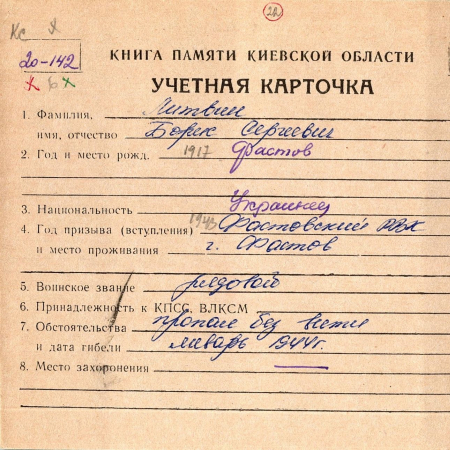 Кс х
20
20-142
х Б х
КНИГА ПАМЯТИ КИЕВСКОЙ ОБЛАСТИ
УЧЕТНАЯ КАРТОЧКА
1. Фамилия, Литвин
имя, отчество Борис Сергеевич
2. Год и место рожд. 1917 Фастов
3. Национальность Украинец
4. Год призыва (вступления) 1943 Фастовский РВК
и место проживания г. Фастов
5. Воинское звание рядовой
6. Принадлежность к КПСС, ВЛКСМ
7. Обстоятельства пропал без вести
и дата гибели январь 1944г.
8. Место захоронения